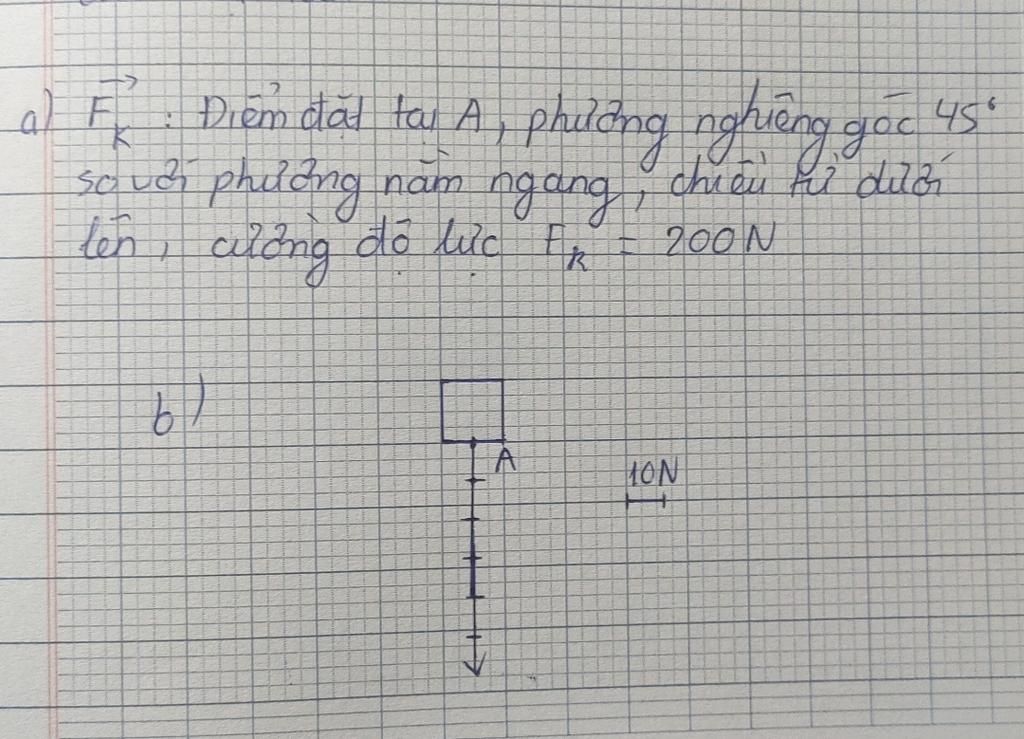 a) F_K : Điểm đặt tại A, phương nghiêng góc 45°
so với phương nằm ngang, chiều từ dưới
lên, cường độ lực F_K = 200N
b)
A
10N